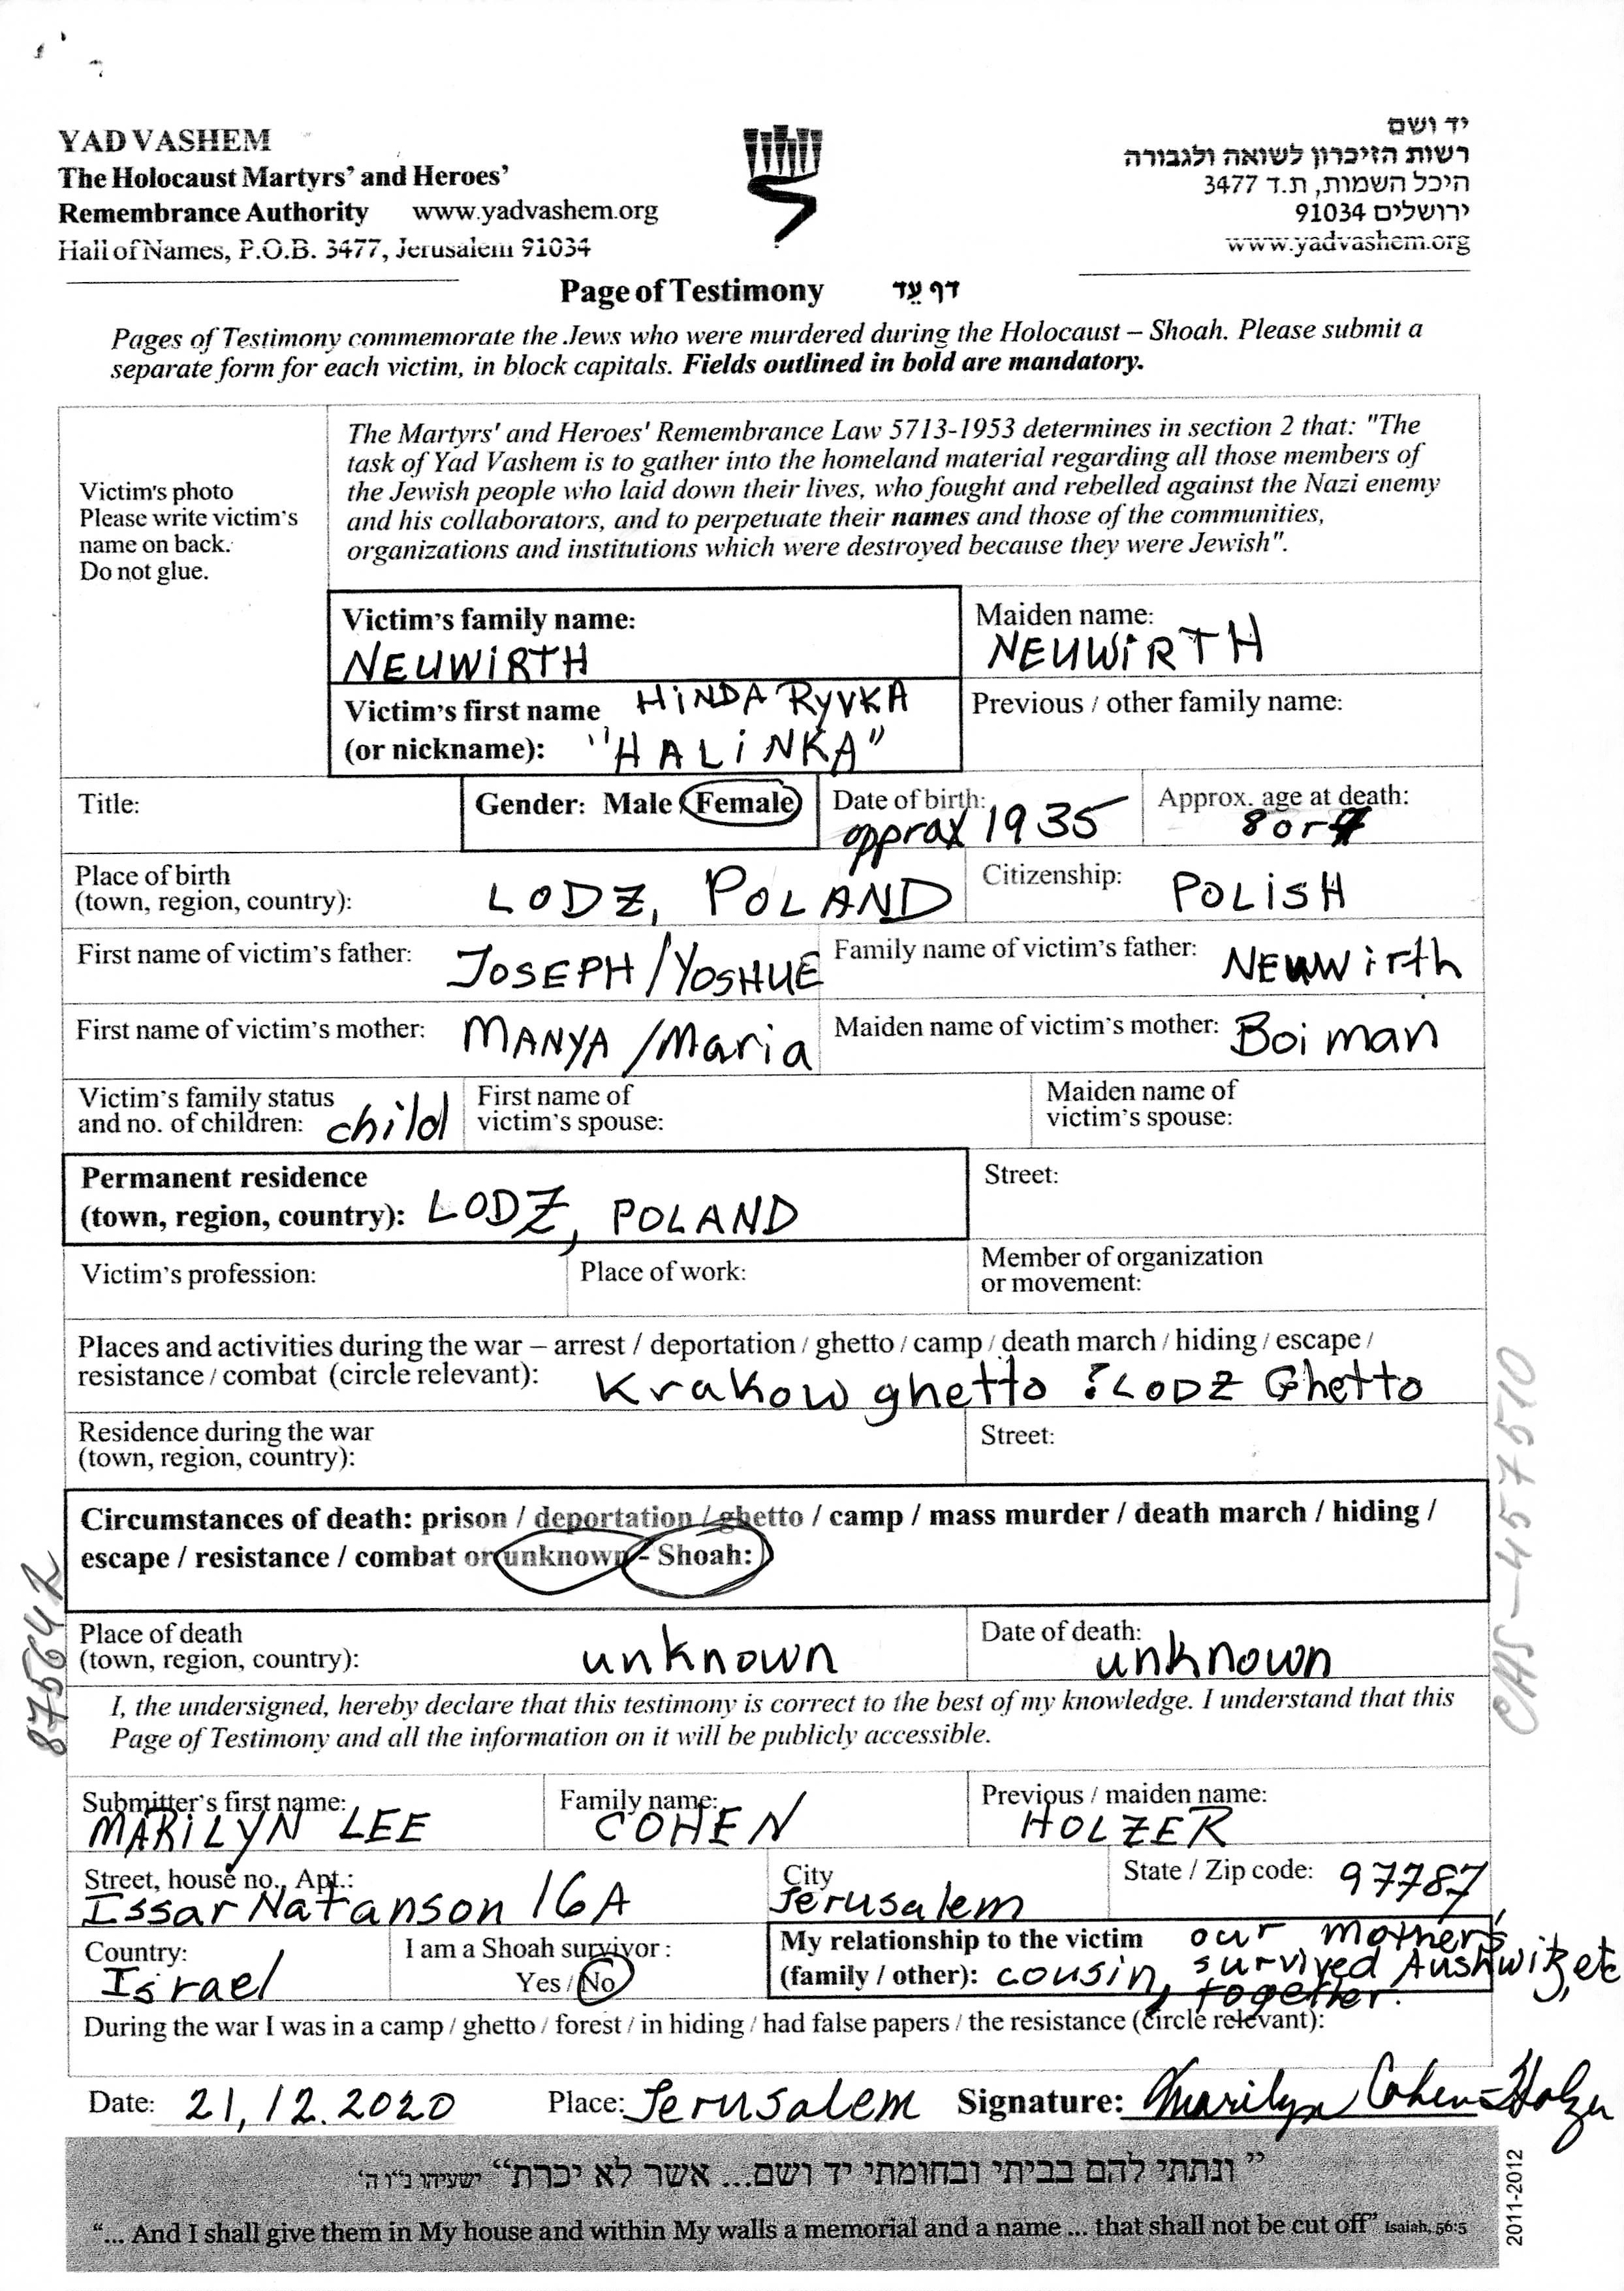 YAD VASHEM
The Holocaust Martyrs' and Heroes'
Remembrance Authority www.yadvashem.org
Hall of Names, P.O.B. 3477, Jerusalem 91034
יד ושם
רשות הזיכרון לשואה ולגבורה
היכל השמות, ת.ד 3477
ירושלים 91034
www.yadvashem.org
Page of Testimony דף עֵד
Pages of Testimony commemorate the Jews who were murdered during the Holocaust – Shoah. Please submit a
separate form for each victim, in block capitals. Fields outlined in bold are mandatory.
Victim's photo
Please write victim's
name on back.
Do not glue.
The Martyrs' and Heroes' Remembrance Law 5713-1953 determines in section 2 that: "The
task of Yad Vashem is to gather into the homeland material regarding all those members of
the Jewish people who laid down their lives, who fought and rebelled against the Nazi enemy
and his collaborators, and to perpetuate their names and those of the communities,
organizations and institutions which were destroyed because they were Jewish".
Victim's family name:
NEUWiRTH
Maiden name:
NEUWiRTH
Victim's first name HiNDA RyVKA
(or nickname): "HALiNKA"
Previous / other family name:
Title:
Gender: Male Female
Date of birth:
approx 1935
Approx. age at death:
8 or 9
Place of birth
(town, region, country): LODZ, POLAND
Citizenship: POLiSH
First name of victim's father: JOSEPH/YOSHUE
Family name of victim's father: NEUWirth
First name of victim's mother: MANYA /Maria
Maiden name of victim's mother: Boiman
Victim's family status
and no. of children: child
First name of
victim's spouse:
Maiden name of
victim's spouse:
Permanent residence
(town, region, country): LODZ, POLAND
Street:
Victim's profession:
Place of work:
Member of organization
or movement:
Places and activities during the war – arrest / deportation / ghetto / camp / death march / hiding / escape /
resistance / combat (circle relevant): Krakow ghetto ?LODZ Ghetto
Residence during the war
(town, region, country):
Street:
Circumstances of death: prison / deportation / ghetto / camp / mass murder / death march / hiding /
escape / resistance / combat or unknown - Shoah:
Place of death
(town, region, country): unknown
Date of death:
unknown
I, the undersigned, hereby declare that this testimony is correct to the best of my knowledge. I understand that this
Page of Testimony and all the information on it will be publicly accessible.
Submitter's first name:
MARiLYN LEE
Family name:
COHEN
Previous / maiden name:
HOLZER
Street, house no., Apt.:
Issar Natanson 16A
City
Jerusalem
State / Zip code: 97787
Country:
Israel
I am a Shoah survivor :
Yes / No
My relationship to the victim
(family / other): cousin, our mothers
survived Aushwitz, etc
together.
During the war I was in a camp / ghetto / forest / in hiding / had false papers / the resistance (circle relevant):
Date: 21,12.2020
Place: Jerusalem
Signature: Marilyn Cohen-Holzer
"ונתתי להם בביתי ובחומתי יד ושם... אשר לא יכרת" ישעיהו נ"ו ה'
"... And I shall give them in My house and within My walls a memorial and a name ... that shall not be cut off" Isaiah, 56:5
2011-2012
CAS-457510